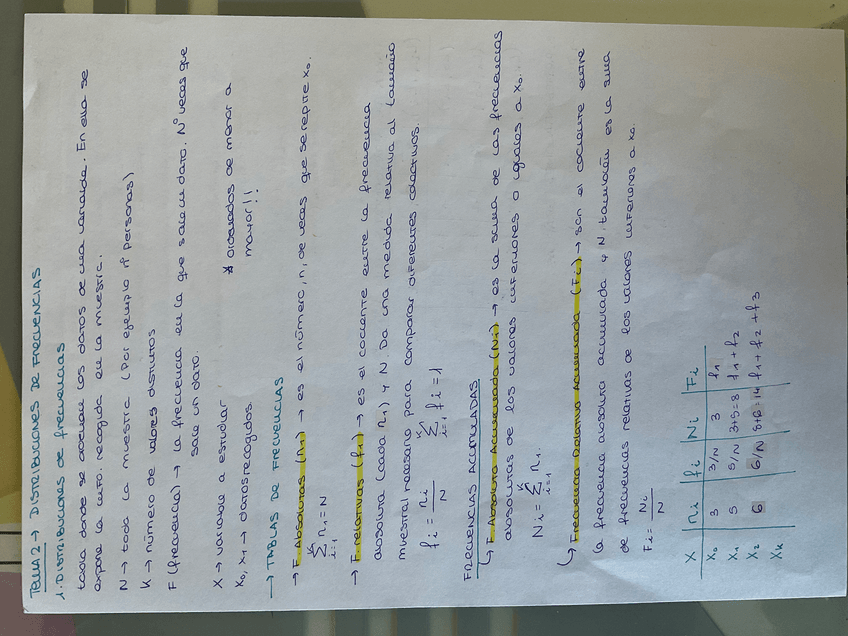 TEMA 2 → DISTRIBUCIONES DE FRECUENCIAS
1. DISTRIBUCIONES de frecuencias
tabla donde se ordenan los datos de una variable. En ella se
expone la info. recogida en la muestra.
N → toda la muestra (Por ejemplo nº personas)
K → número de valores distintos
F (frecuencia) → la frecuencia en la que sale un dato. Nº veces que
sale un dato.
X → variable a estudiar
X₀, X₁ → datos recogidos.
* ordenados de menor a
mayor!!
→ TABLAS DE FRECUENCIAS
→ F. Absolutas (n₁) → es el número, n, de veces que se repite x₀.
K∑i=1 n₁ = N
→ F. relativas (f₁) → es el cociente entre la frecuencia
absoluta (cada n₁) y N. Da una medida relativa al tamaño
muestral necesario para comparar diferentes colectivos.
fi = ni/N K∑i=1 fi = 1
FRECUENCIAS ACUMULADAS
↳ F. Absoluta Acumulada (Ni) → es la suma de las frecuencias
absolutas de los valores inferiores o iguales a x₀.
Ni = K∑i=1 n₁.
↳ Frecuencia Relativa Acumulada (Fi) → son el cociente entre
la frecuencia absoluta acumulada y N. también es la suma
de frecuencias relativas de los valores inferiores a x₀.
Fi = Ni/N
X | ni | fi | Ni | Fi
X₀ | 3 | 3/N | 3 | f₁
X₁ | 5 | 5/N | 3+5=8 | f₁+f₂
X₂ | 6 | 6/N | 8+6=14 | f₁+f₂+f₃
Xk